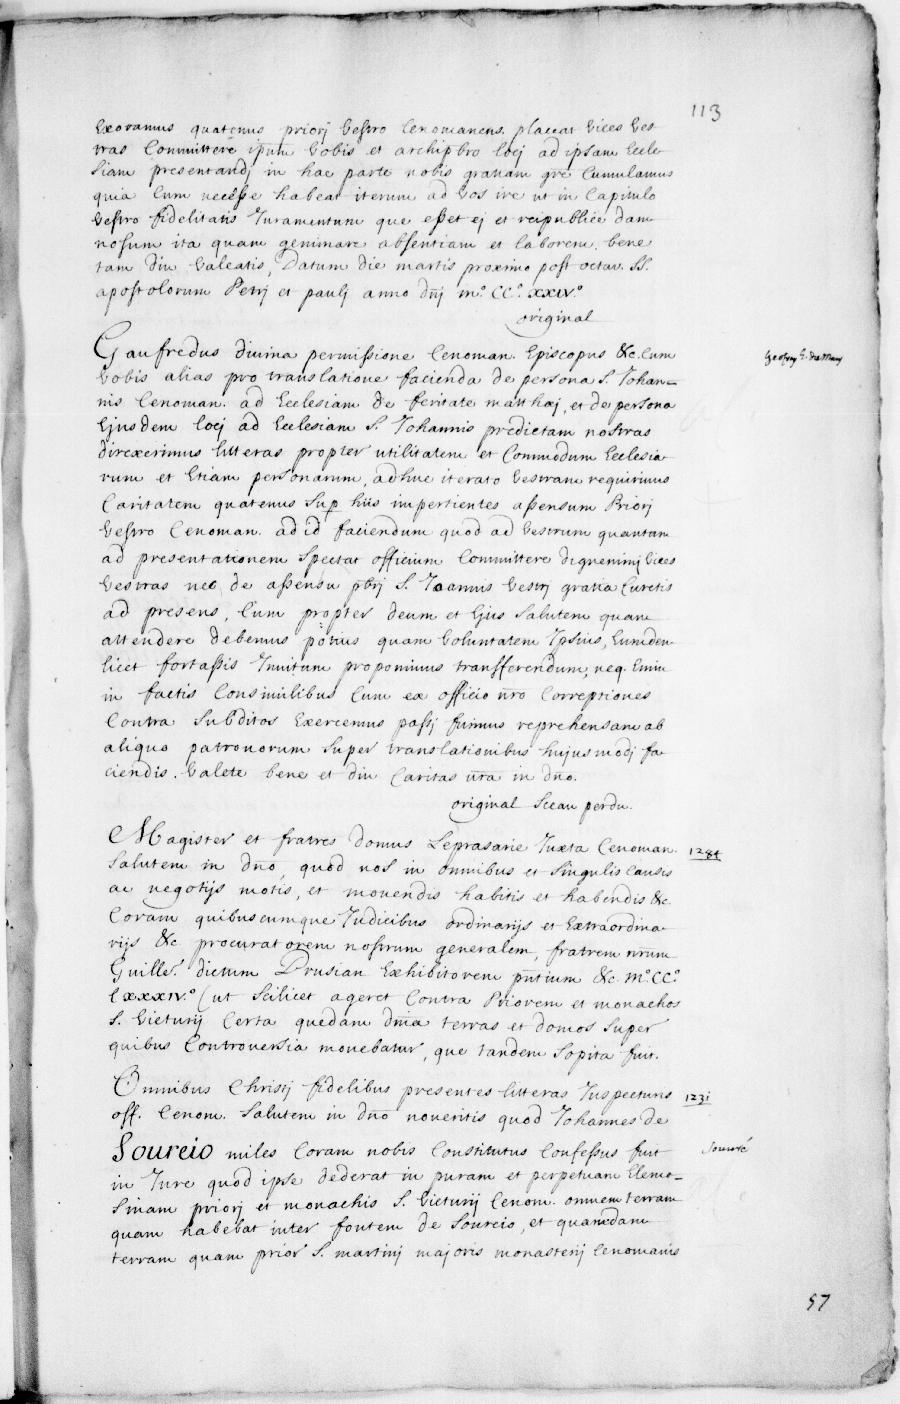 113
Exoramus quatenus priorj Vestro Cenomanens. placeat Vices Ves
tras Committere ipum Vobis et archipbro locj ad ipsam Eccle
siam presentandj in hac parte nobis gratiam gre Cumulamus
quia Cum necesse habeat iterum ad Vos ire ut in Capitulo
Vestro fidelitatis Juramentum que esset ej et reipublice dam
nosum ita quam geminare absentiam et laborem. bene
tam diu Valeatis, Datum die martis proximo post octav. SS.
apostolorum Petrj et paulj anno dnj m.° CC.° XXIV.°
original
Gaufredus divina permissione Cenoman. Episcopus &c. Cum
Geofroy E. du Mans
Vobis alias pro translatione facienda de persona S. Johan=
nis Cenoman. ad Ecclesiam de feritate matthaj, et de persona
Ejusdem locj ad Ecclesiam S. Johannis predictam nostras
direxerimus litteras propter utilitatem et Commodum Ecclesia
rum et Etiam personarum, adhuc iterato Vestram requirimus
Caritatem quatenus Sup hiis impertientes assensum Priorj
Vestro Cenoman. ad id faciendum quod ad Vestrum quantum
ad presentationem Spectat officium Committere dignemini Vices
Vestras nec de assensu pbrj S. Joannis Vestrj gratia Curetis
ad presens, Cum propter deum et Ejus Salutem quam
attendere debemus potius quam Voluntatem Ipsius, Eumdem
licet fortassis Invitum proponimus transfferendum, neq. Enim
in factis Consimilibus Cum ex officio nro Correptiones
Contra Subditos Exercemus passj fuimus reprehensam ab
aliquo patronorum Super translationibus hujusmodj fa
ciendis. Valete bene et diu Caritas vra in dno.
original Sceau perdu.
Magister et fratres domus Leprasarie Juxta Cenoman.
1284
Salutem in dno, quod nos in omnibus et Singulis Causis
ac negotijs motis, et movendis habitis et habendis &c.
Coram quibuscumque Judicibus ordinarijs et Extraordina
rijs &c. procuratorem nostrum generalem, fratrem nrum
Guille.° dictum Drusian Exhibitorem pntium &c. M.° CC.°
LXXXIV.° (ut Scilicet ageret Contra Priorem et monachos
S. Victurij Certa quedam dnia terras et domos Super
quibus Controversia movebatur, que tandem Sopita fuit.
Omnibus Christj fidelibus presentes litteras Inspecturis
1231
off. Cenom. Salutem in dno noveritis quod Johannes de
Sourcio miles Coram nobis Constitutus Confessus fuit
Souvré
in Jure quod ipse dederat in puram et perpetuam Elemo=
Sinam priorj et monachis S. Victurij Cenom. omnem terram
quam habebat inter fontem de Sourcio, et quamdam
terram quam prior S. martinj majoris monasterij Cenomanis
57